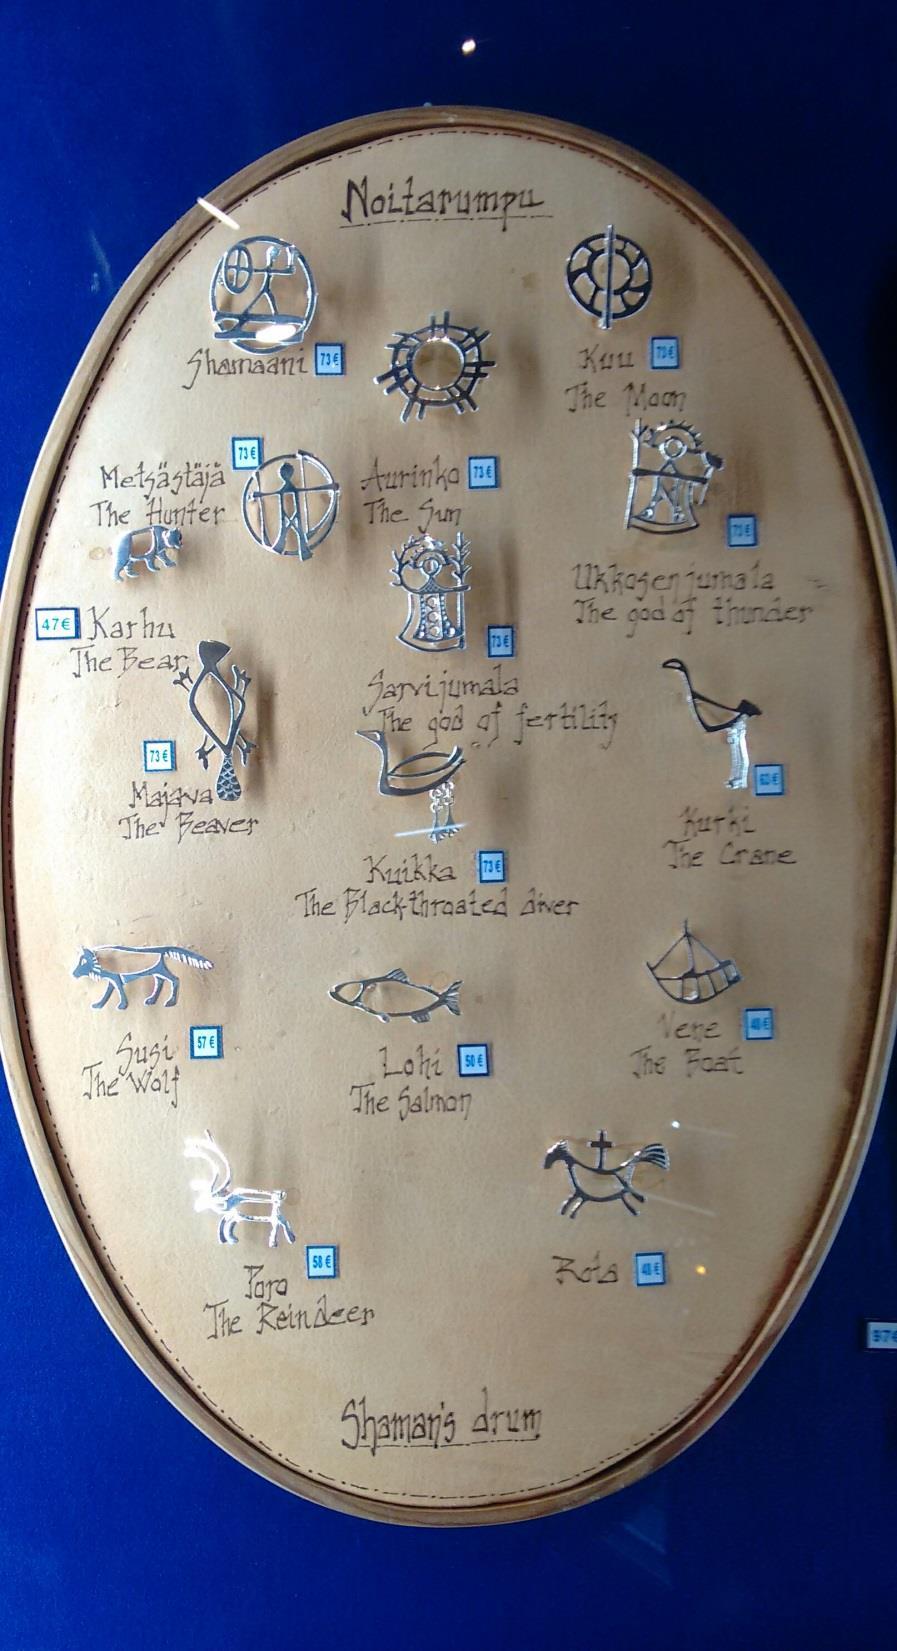 Noitarumpu
Shamaani 73 €
Kuu
The Moon
Metsästäjä 73 €
The Hunter
Aurinko 73 €
The Sun
73 €
Ukkosenjumala
The god of thunder
47 € Karhu
The Bear
73 €
Sarvijumala
The god of fertility
73 €
Majava
The Beaver
Kurki
The Crane
Kuikka 73 €
The Blackthroated diver
Susi 57 €
The Wolf
Lohi 50 €
The Salmon
Vene
The Boat
Poro 58 €
The Reindeer
Rota
97€
Shaman's drum